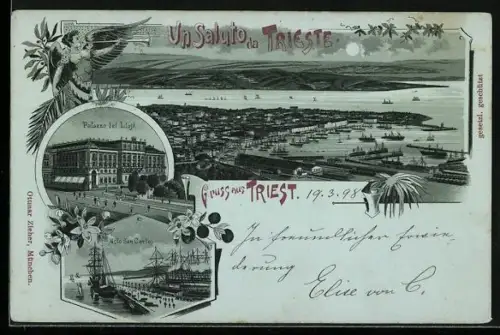 Un Saluto da TRIESTE
Palazzo del Lloyd
Gruss aus TRIEST.
19.3.98
Molo San Carlo
In freundlicher Erwie-
derung
Elise von C.
Ottmar Zieher, München.
gesetzl. geschützt